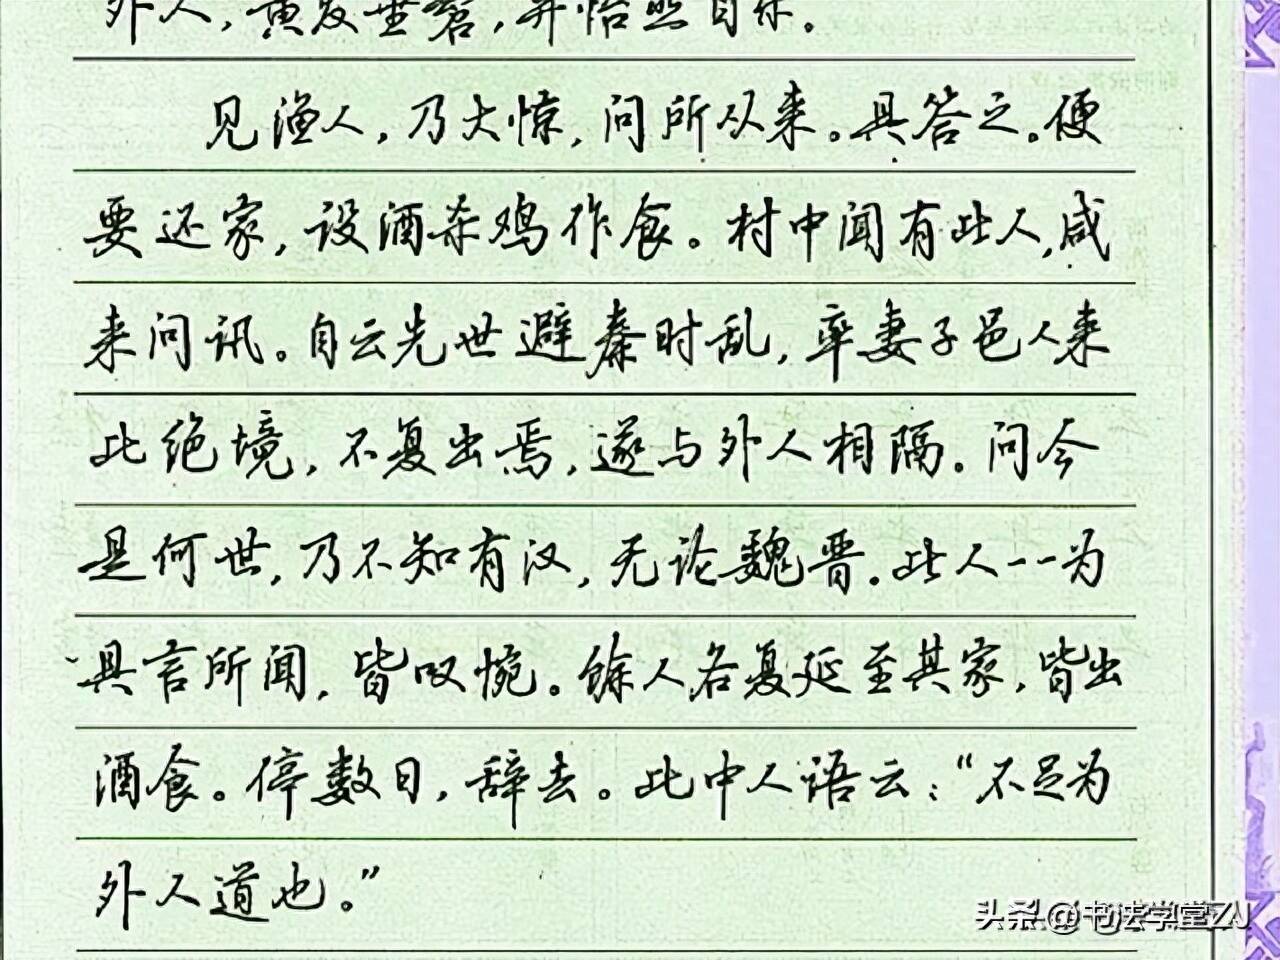 外人，黄发垂髫，并怡然自乐。
见渔人，乃大惊，问所从来。具答之。便
要还家，设酒杀鸡作食。村中闻有此人，咸
来问讯。自云先世避秦时乱，率妻子邑人来
此绝境，不复出焉，遂与外人相隔。问今
是何世，乃不知有汉，无论魏晋。此人一一为
具言所闻，皆叹惋。馀人各复延至其家，皆出
酒食。停数日，辞去。此中人语云：“不足为
外人道也。”
头条 @书法学堂ZJ